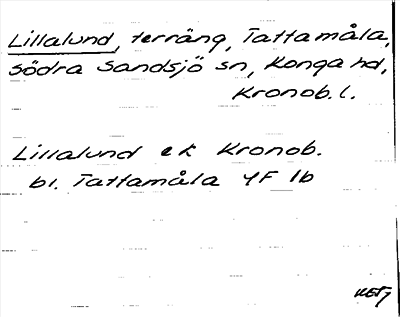 Lillalund, terräng, Tattamåla,
Södra Sandsjö sn, Konga hd,
Kronob. l.
Lillalund ek Kronob.
bl. Tattamåla 4F 1b